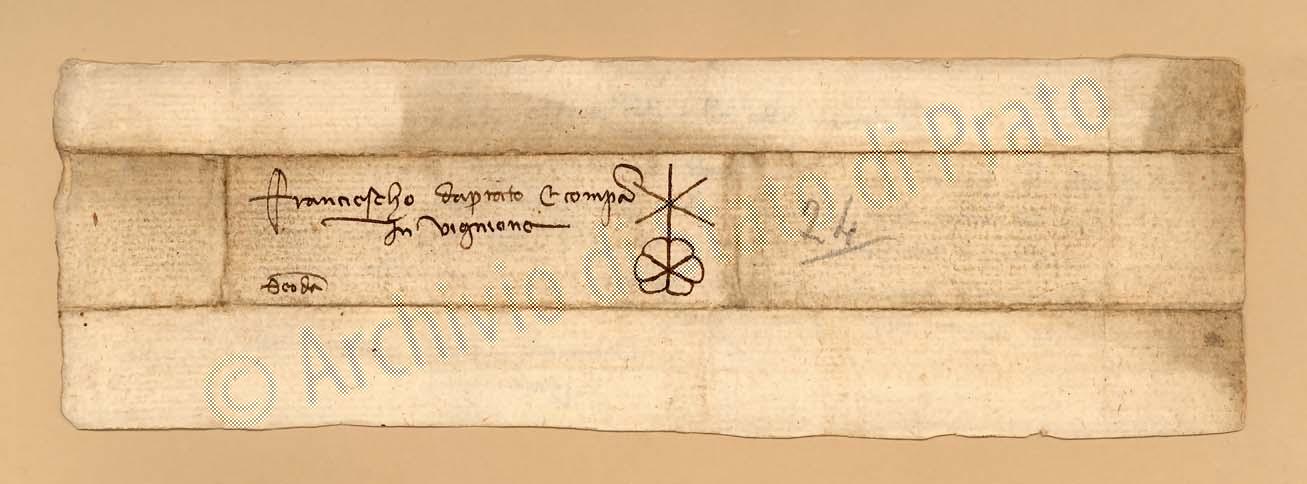 Franciescho daprato e compa
In vignione
Deo da
24
© Archivio di Stato di Prato